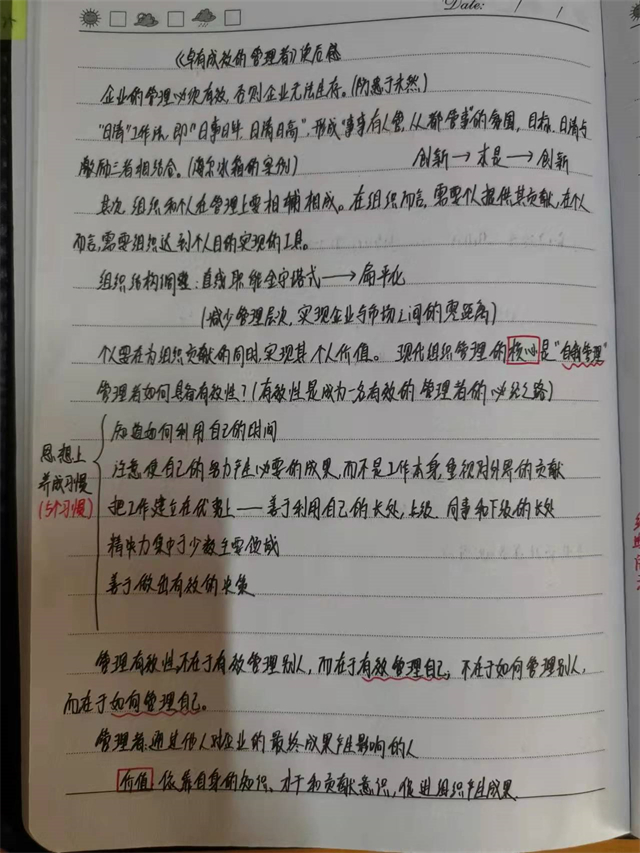 Date: / /
《卓有成效的管理者》读后感
企业的管理必须有效,否则企业无法生存。(防患于未然)
"日清"工作法,即"日事日毕,日清日高",形成"事事有人管,人人都管事"的氛围,目标、日清与
激励三者相结合。(海尔冰箱的案例) 创新→本是→创新
其次,组织和个人在管理上要相辅相成。在组织而言,需要个人提供其贡献,在个人
而言,需要组织达到个人目的实现的工具。
组织结构调整:直线职能金字塔式→扁平化
(减少管理层次,实现企业与市场之间的零距离)
个人要在为组织贡献的同时,实现其个人价值。 现代组织管理的核心是"自我管理"
管理者如何具备有效性?(有效性是成为一名有效的管理者的必经之路)
思想上
养成习惯
(5个习惯)
知道如何利用自己的时间
注意使自己的努力产生必要的成果,而不是工作本身,重视对外界的贡献
把工作建立在优势上——善于利用自己的长处,上级、同事和下级的长处
精力集中于少数主要领域
善于做出有效的决策
管理有效性,不在于有效管理别人,而在于有效管理自己,不在于如何管理别人,
而在于如何管理自己。
管理者:通过他人对企业的最终成果产生影响的人
价值 依靠自身的知识、才干和贡献意识,促进组织产生成果